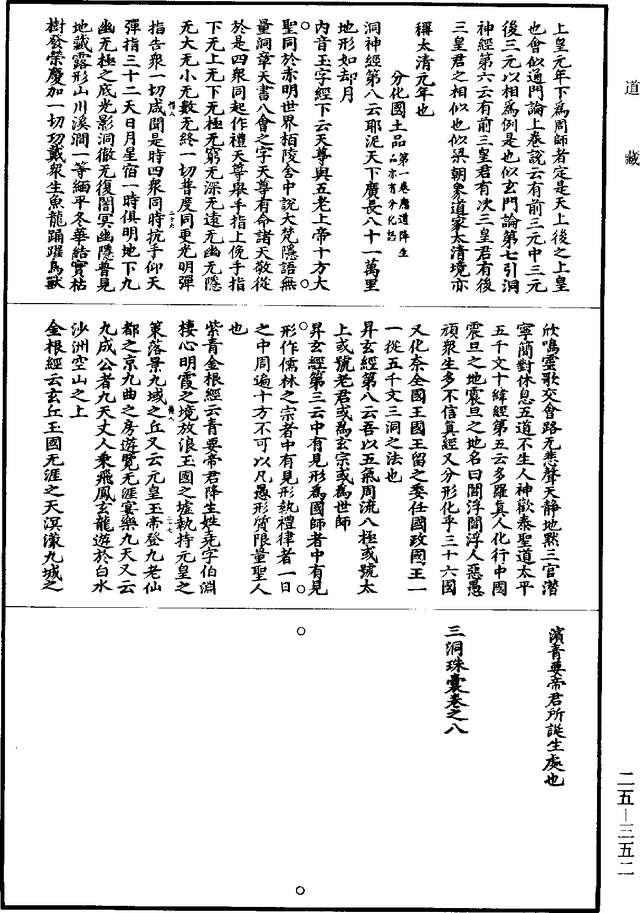 道藏
上皇元年下為周師者定是天上後之上皇
也會似通門論上卷說云有前三元中三元
後三元以相為例是也似玄門論第七引洞
神經第六云有前三皇君有次三皇君有後
三皇君之相似也似梁朝彖道家太清境亦
稱太清元年也
分化國土品第一卷應道降生品亦有分化語
洞神經第八云耶泥天下廣長八十一萬里
地形如却月
內音玉字經下云天尊與五老上帝十方大
聖同於赤明世界栢陵舍中說大梵隱語無
量洞章天書八會之字天尊有命諸天敬從
於是四衆同起作禮天尊舉手指上俛手指
下无上无下无極无窮无深无遠无幽无隱
无大无小无數无終一切普度同更光明彈
指告衆一切咸聞是時四衆同時抗手仰天
彈指三十二天日月星宿一時俱明地下九
幽无極之底光影洞徹无復闇冥幽隱普見
地藏露形山川溪澗一等緬平冬華結實枯
樹發榮慶加一切功戴衆生魚龍踊躍鳥獸
欣鳴靈歌交會路无悲聲天靜地默三官潛
寧簡對休息五道不生人神歡泰聖道太平
五千文十緯經第五云多羅真人化行中國
震旦之地震旦之地名曰閻浮閻浮人惡愚
頑衆生多不信真經又分形化乎三十六國
又化奈全國王國王留之委任國政國王一
一從五千文三洞之法也
昇玄經第八云吾以五氣周流八極或號太
上或號老君或為玄宗或為世師
昇玄經第三云中有見形為國師者中有見
形作儒林之宗者中有見形執禮律者一日
之中周遍十方不可以凡愚形質限量聖人
也
紫青金根經云青要帝君降生姓堯字伯淵
棲心明霞之境放浪玉國之墟執持元皇之
策落景九域之丘又云元皇玉帝登九老仙
都之京九曲之房遊覽无涯宴樂九天又云
九成公者九天丈人乘飛鳳玄龍遊於白水
沙洲空山之上
金根經云玄丘玉國无涯之天溟漾九城之
濱青要帝君所誕生處也
三洞珠囊卷之八
二五—三五二